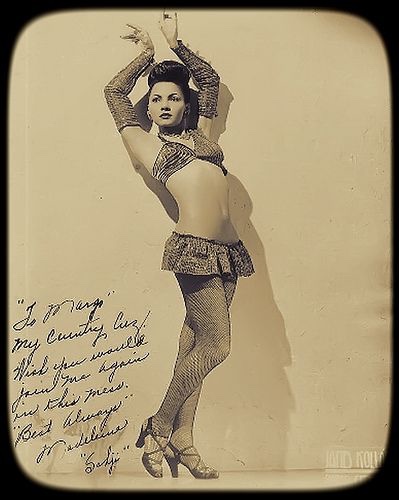 "To Margo"
My Country Cuz,
Wish you would
join me again
in this mess.
"Best Always"
Madeline
"Sahji"